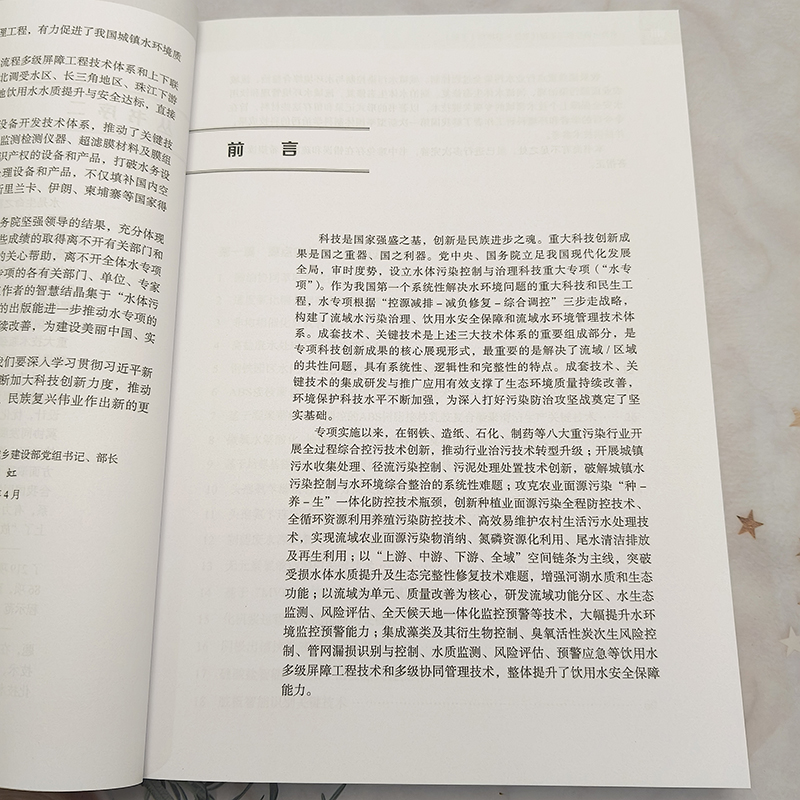 理工程，有力促进了我国城镇水环境质
流程多级屏障工程技术体系和上下联
北调受水区、长三角地区、珠江下游
地饮用水水质提升与安全达标，直接
设备开发技术体系，推动了关键技
监测检测仪器、超滤膜材料及膜组
识产权的设备和产品，打破水务设
处理设备和产品，不仅填补国内空
斯里兰卡、伊朗、柬埔寨等国家得
务院坚强领导的结果，充分体现
些成绩的取得离不开有关部门和
的关心帮助，离不开全体水专项
专项的各有关部门、单位、专家
工作者的智慧结晶集于“水体污
的出版能进一步推动水专项的
续改善，为建设美丽中国、实
我们要深入学习贯彻习近平新
断加大科技创新力度，推动
民族复兴伟业作出新的更
乡建设部党组书记、部长
年4月
前 言
科技是国家强盛之基，创新是民族进步之魂。重大科技创新成
果是国之重器、国之利器。党中央、国务院立足我国现代化发展
全局，审时度势，设立水体污染控制与治理科技重大专项（“水专
项”）。作为我国第一个系统性解决水环境问题的重大科技和民生工
程，水专项根据“控源减排-减负修复-综合调控”三步走战略，
构建了流域水污染治理、饮用水安全保障和流域水环境管理技术体
系。成套技术、关键技术是上述三大技术体系的重要组成部分，是
专项科技创新成果的核心展现形式，最重要的是解决了流域/区域
的共性问题，具有系统性、逻辑性和完整性的特点。成套技术、关
键技术的集成研发与推广应用有效支撑了生态环境质量持续改善，
环境保护科技水平不断加强，为深入打好污染防治攻坚战奠定了坚
实基础。
专项实施以来，在钢铁、造纸、石化、制药等八大重污染行业开
展全过程综合控污技术创新，推动行业治污技术转型升级；开展城镇
污水收集处理、径流污染控制、污泥处理处置技术创新，破解城镇水
污染控制与水环境综合整治的系统性难题；攻克农业面源污染“种-
养-生”一体化防控技术瓶颈，创新种植业面源污染全程防控技术、
全循环资源利用养殖污染防控技术、高效易维护农村生活污水处理技
术，实现流域农业面源污染物消纳、氮磷资源化利用、尾水清洁排放
及再生利用；以“上游、中游、下游、全域”空间链条为主线，突破
受损水体水质提升及生态完整性修复技术难题，增强河湖水质和生态
功能；以流域为单元、质量改善为核心，研发流域功能分区、水生态
监测、风险评估、全天候天地一体化监控预警等技术，大幅提升水环
境监控预警能力；集成藻类及其衍生物控制、臭氧活性炭次生风险控
制、管网漏损识别与控制、水质监测、风险评估、预警应急等饮用水
多级屏障工程技术和多级协同管理技术，整体提升了饮用水安全保障
能力。